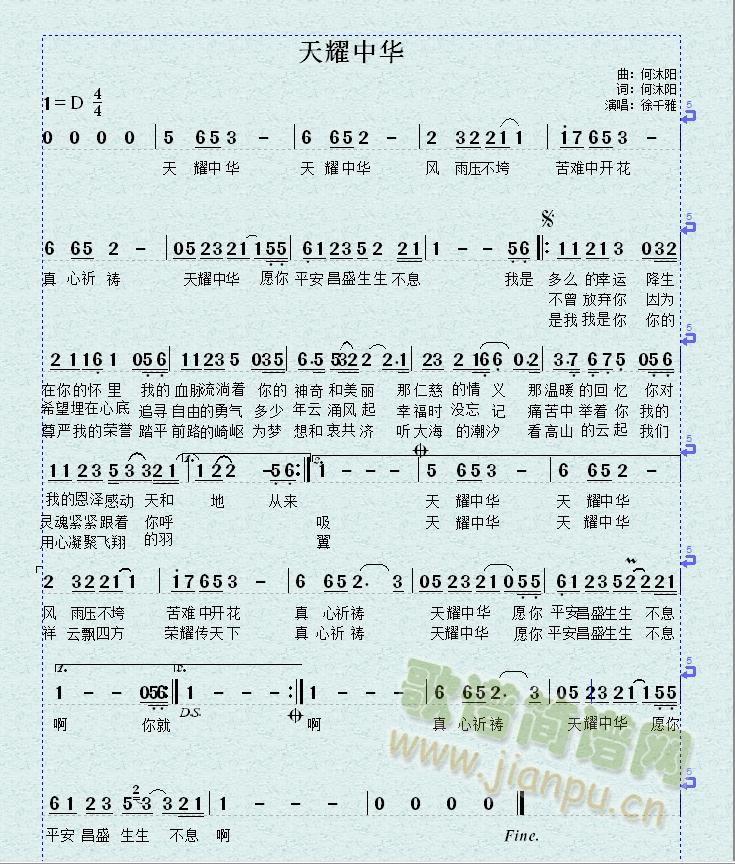 天耀中华
曲：何沐阳
词：何沐阳
演唱：徐千雅
1=D 4/4
0 0 0 0 | 5 6 5 3 - | 6 6 5 2 - | 2 3 2 2 1 1 | 1 7 6 5 3 -
天 耀中华 天 耀中华 风 雨压不垮 苦难中开花
6 6 5 2 - | 0 5 2 3 2 1 1 5 5 | 6 1 2 3 5 2 2 1 | 1 - - 5 6 ‖: 1 1 2 1 3 0 3 2
真 心祈 祷 天耀中华 愿你 平安昌盛生生不息 我是 多么的幸运 降生
不曾放弃你 因为
是我我是你 你的
2 1 1 6 1 0 5 6 | 1 1 2 3 5 0 3 5 | 6 5 5 3 2 2 2 1 | 2 3 2 1 6 6 0 2 | 3 7 6 7 5 0 5 6
在你的怀里 我的血脉流淌着 你的 神奇和美丽 那仁慈的情义 那温暖的回忆 你对
希望埋在心底 追寻自由的勇气 多少 年云涌风起 幸福时没忘记 痛苦中举着你 我的
尊严我的荣誉 踏平前路的崎岖 为梦 想和衷共济 听大海的潮汐 看高山的云起 我们
1 1 2 3 5 3 3 2 1 | 1. 1 2 2 - 5 6 :‖ 2. 1 - - - | 5 6 5 3 - | 6 6 5 2 -
我的恩泽感动 天和 地 从来 天 耀中华 天 耀中华
灵魂紧紧跟着 你呼 吸 天 耀中华 天 耀中华
用心凝聚飞翔 的羽 翼
2 3 2 2 1 1 | 1 7 6 5 3 - | 6 6 5 2 . 3 | 0 5 2 3 2 1 0 5 5 | 6 1 2 3 5 2 2 2 1
风 雨压不垮 苦难中开花 真 心祈祷 天耀中华 愿你 平安昌盛生生 不息
祥 云飘四方 荣耀传天下 真心祈祷 天耀中华 愿你 平安昌盛生生 不息
1. 1 - - 0 5 6 :‖ 2. 1 - - - :‖ 1 - - - | 6 6 5 2 . 3 | 0 5 2 3 2 1 1 5 5
D.S.
啊 你就 啊 真 心祈祷 天耀中华 愿你
6 1 2 3 5 3 3 2 1 | 1 - - - | 0 0 0 0
平安昌盛 生生 不息 啊
Fine.
歌谱简谱网
www.jianpu.cn